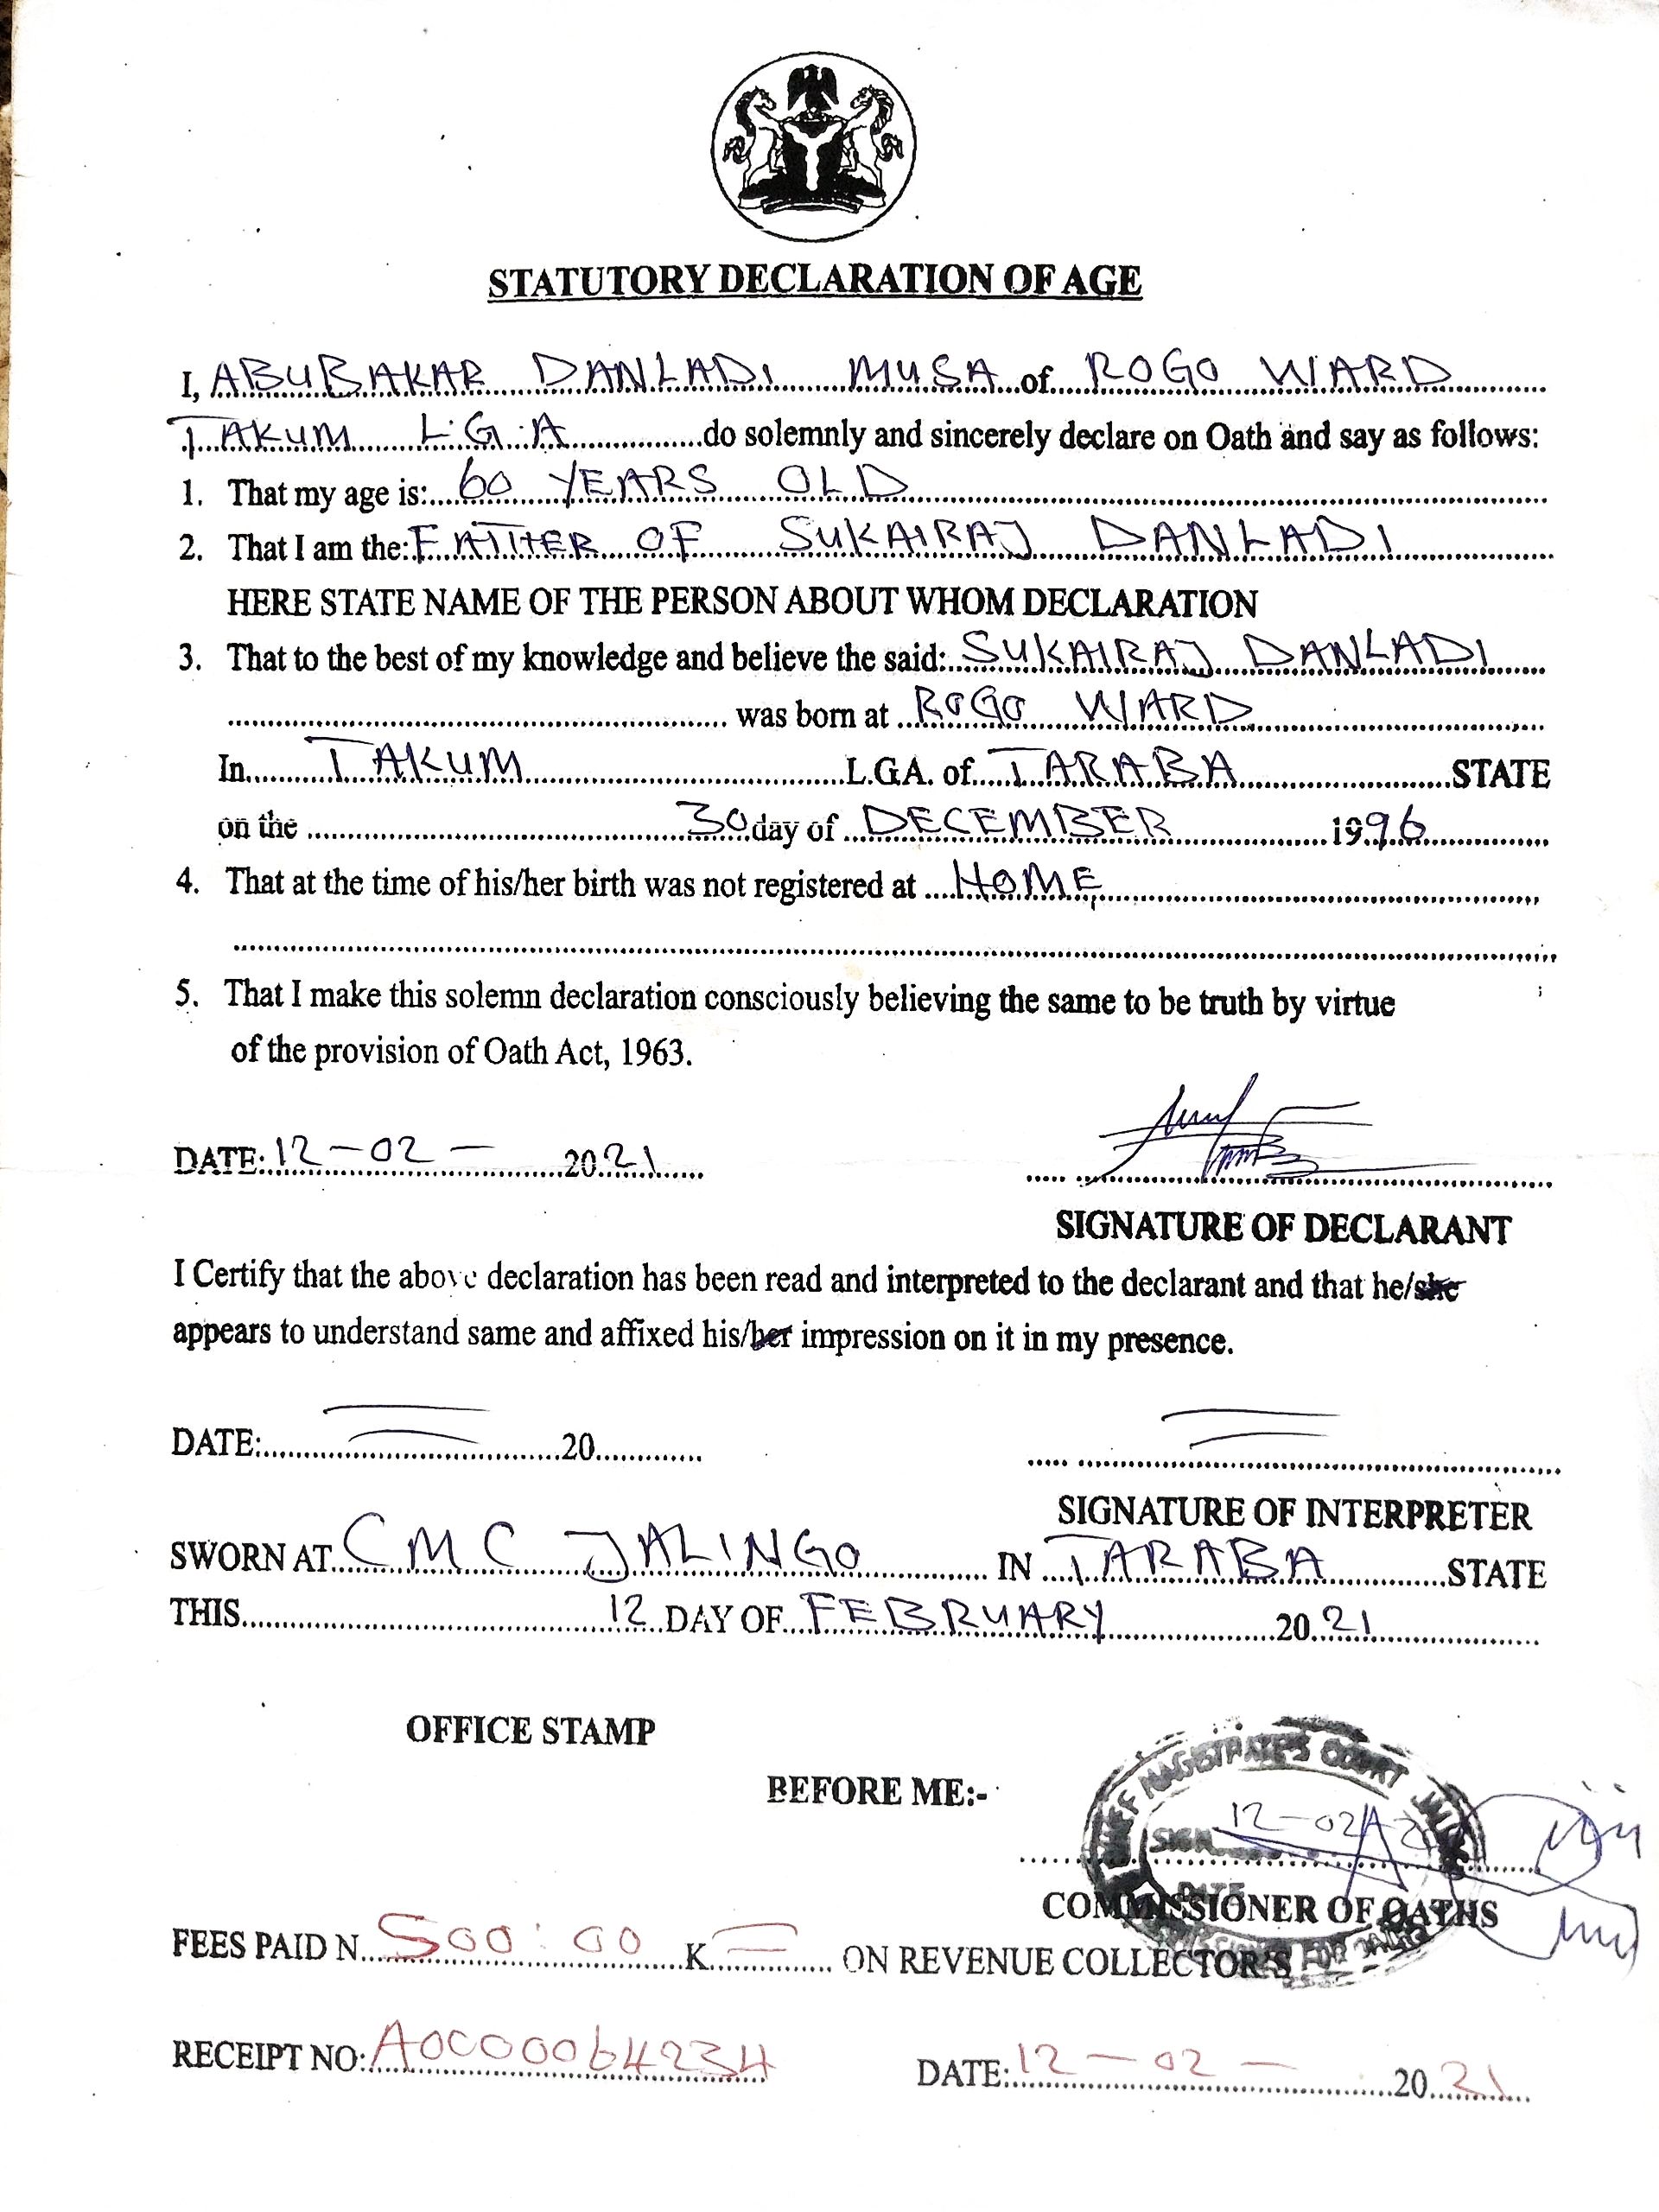 STATUTORY DECLARATION OF AGE
I, ABUBAKAR DANLADI MUSA of ROGO WARD
TAKUM L.G.A do solemnly and sincerely declare on Oath and say as follows:
1. That my age is: 60 YEARS OLD
2. That I am the: FATHER OF SUKAIRAJ DANLADI
HERE STATE NAME OF THE PERSON ABOUT WHOM DECLARATION
3. That to the best of my knowledge and believe the said: SUKAIRAJ DANLADI
was born at ROGO WARD
In TAKUM L.GA. of TARABA STATE
on the 30 day of DECEMBER 1996
4. That at the time of his/her birth was not registered at HOME
5. That I make this solemn declaration consciously believing the same to be truth by virtue
of the provision of Oath Act, 1963.
DATE: 12-02- 2021
SIGNATURE OF DECLARANT
I Certify that the above declaration has been read and interpreted to the declarant and that he/she
appears to understand same and affixed his/her impression on it in my presence.
DATE: 20
SIGNATURE OF INTERPRETER
SWORN AT CMC JALINGO IN TARABA STATE
THIS 12 DAY OF FEBRUARY 2021
OFFICE STAMP
BEFORE ME:-
CHIEF MAGISTRATE'S COURT
SIGN
12-02
DATE
COMMISSIONER OF OATHS
FEES PAID N 500:00 K = ON REVENUE COLLECTOR'S
RECEIPT NO: A0000064234 DATE: 12-02- 2021